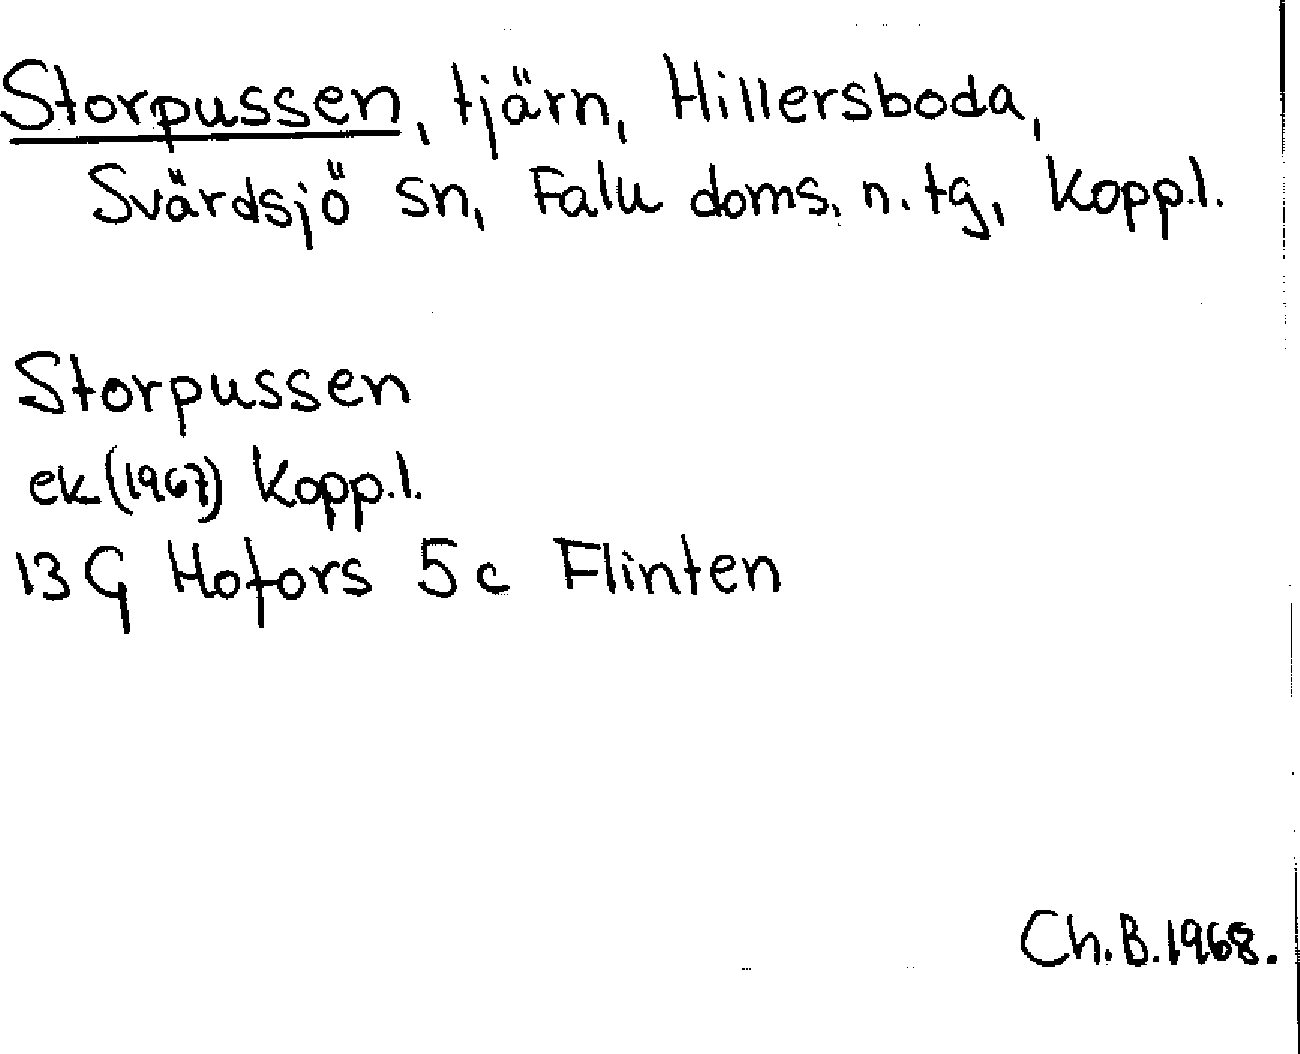 Storpussen, tjärn, Hillersboda,
Svärdsjö sn, Falu doms. n. tg, Kopp.l.
Storpussen
ek (1967) Kopp.l.
13 G Hofors 5 c Flinten
Ch. B. 1968.